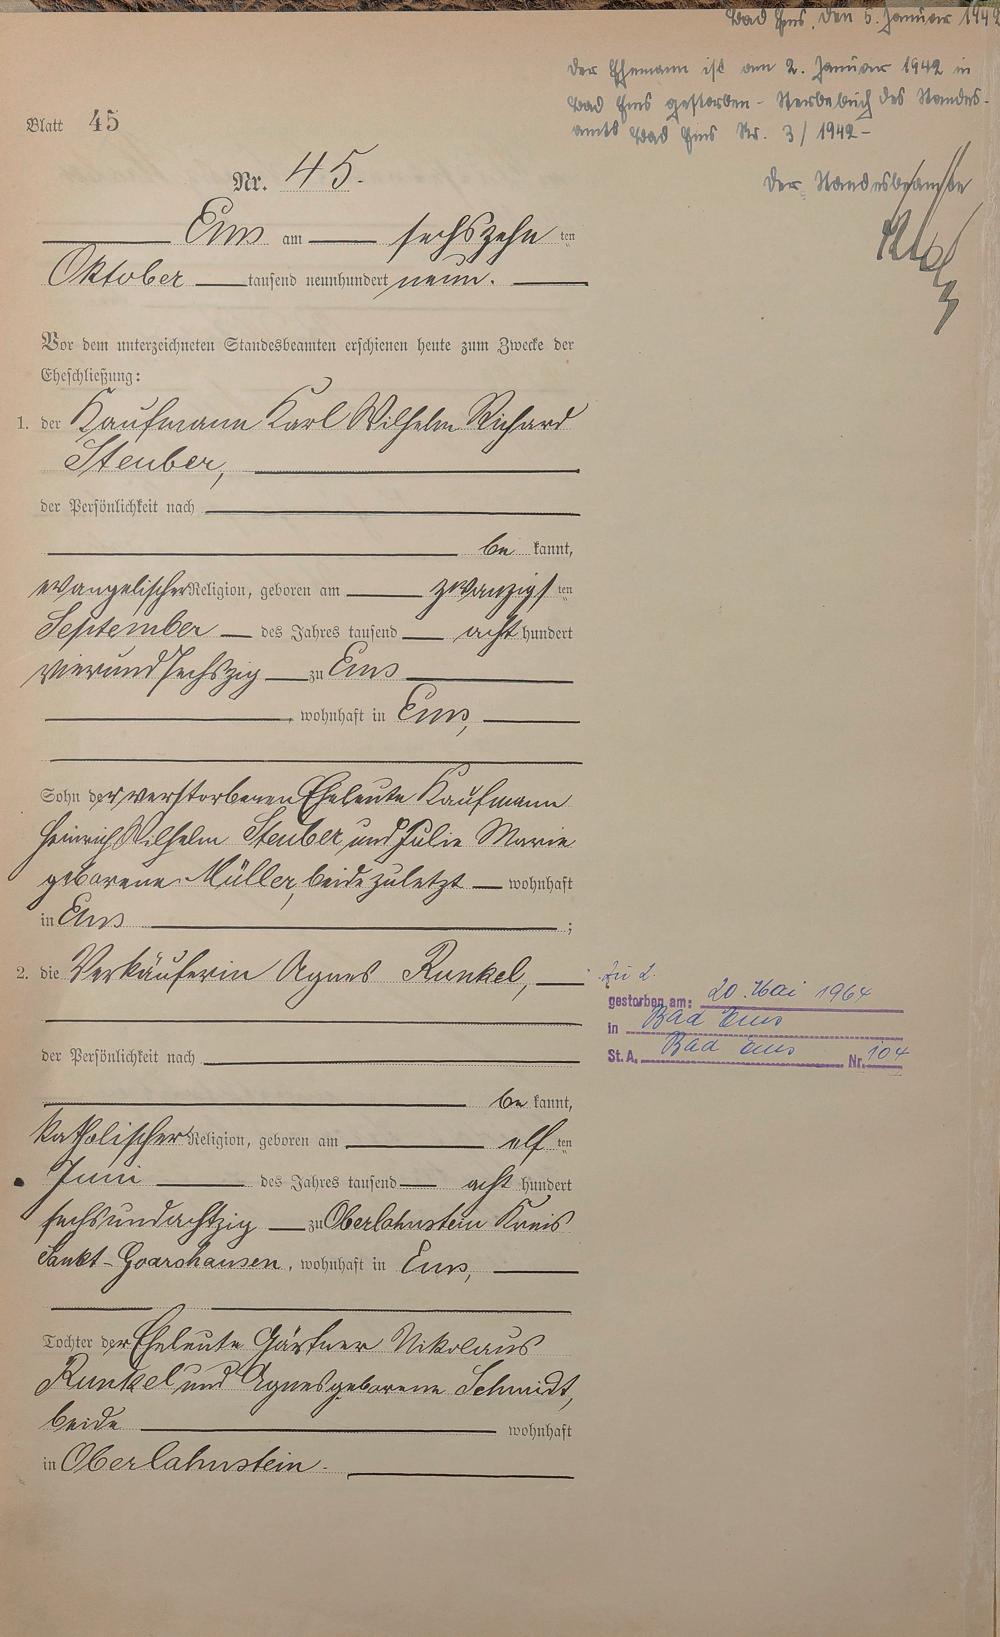 Bad Ems, den 5. Januar 1942
Der Ehemann ist am 2. Januar 1942 in
Bad Ems gestorben - Sterbebuch des Standes-
amts Bad Ems Nr. 3/1942 -
Der Standesbeamte
Blatt 45
Nr. 45.
Ems am sechszehnten
Oktober tausend neunhundert neun.
Vor dem unterzeichneten Standesbeamten erschienen heute zum Zwecke der
Eheschließung:
1. der Kaufmann Karl Wilhelm Richard
Steuber,
der Persönlichkeit nach
be kannt,
evangelischer Religion, geboren am zwanzigsten
September des Jahres tausend acht hundert
vierundsechszig zu Ems
, wohnhaft in Ems,
Sohn der verstorbenen Eheleute Kaufmann
Heinrich Wilhelm Steuber und Julie Marie
geborene Müller, beide zuletzt wohnhaft
in Ems ;
2. die Verkäuferin Agnes Runkel,
zu 2.
gestorben am: 20. Mai 1964
in Bad Ems
St. A. Bad Ems Nr. 104
der Persönlichkeit nach
be kannt,
katholischer Religion, geboren am elften
Juni des Jahres tausend acht hundert
sechsundachtzig zu Oberlahnstein Kreis
Sankt-Goarshausen, wohnhaft in Ems,
Tochter der Eheleute Gärtner Nikolaus
Runkel und Agnes geborene Schmidt,
beide wohnhaft
in Oberlahnstein.